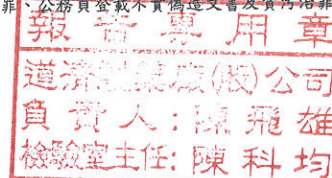 罪、公務員登載不實偽造文書及瀆乃治罪
報告專用章
道濟製藥廠(股)公司
負責人:陳飛雄
檢驗室主任:陳科均